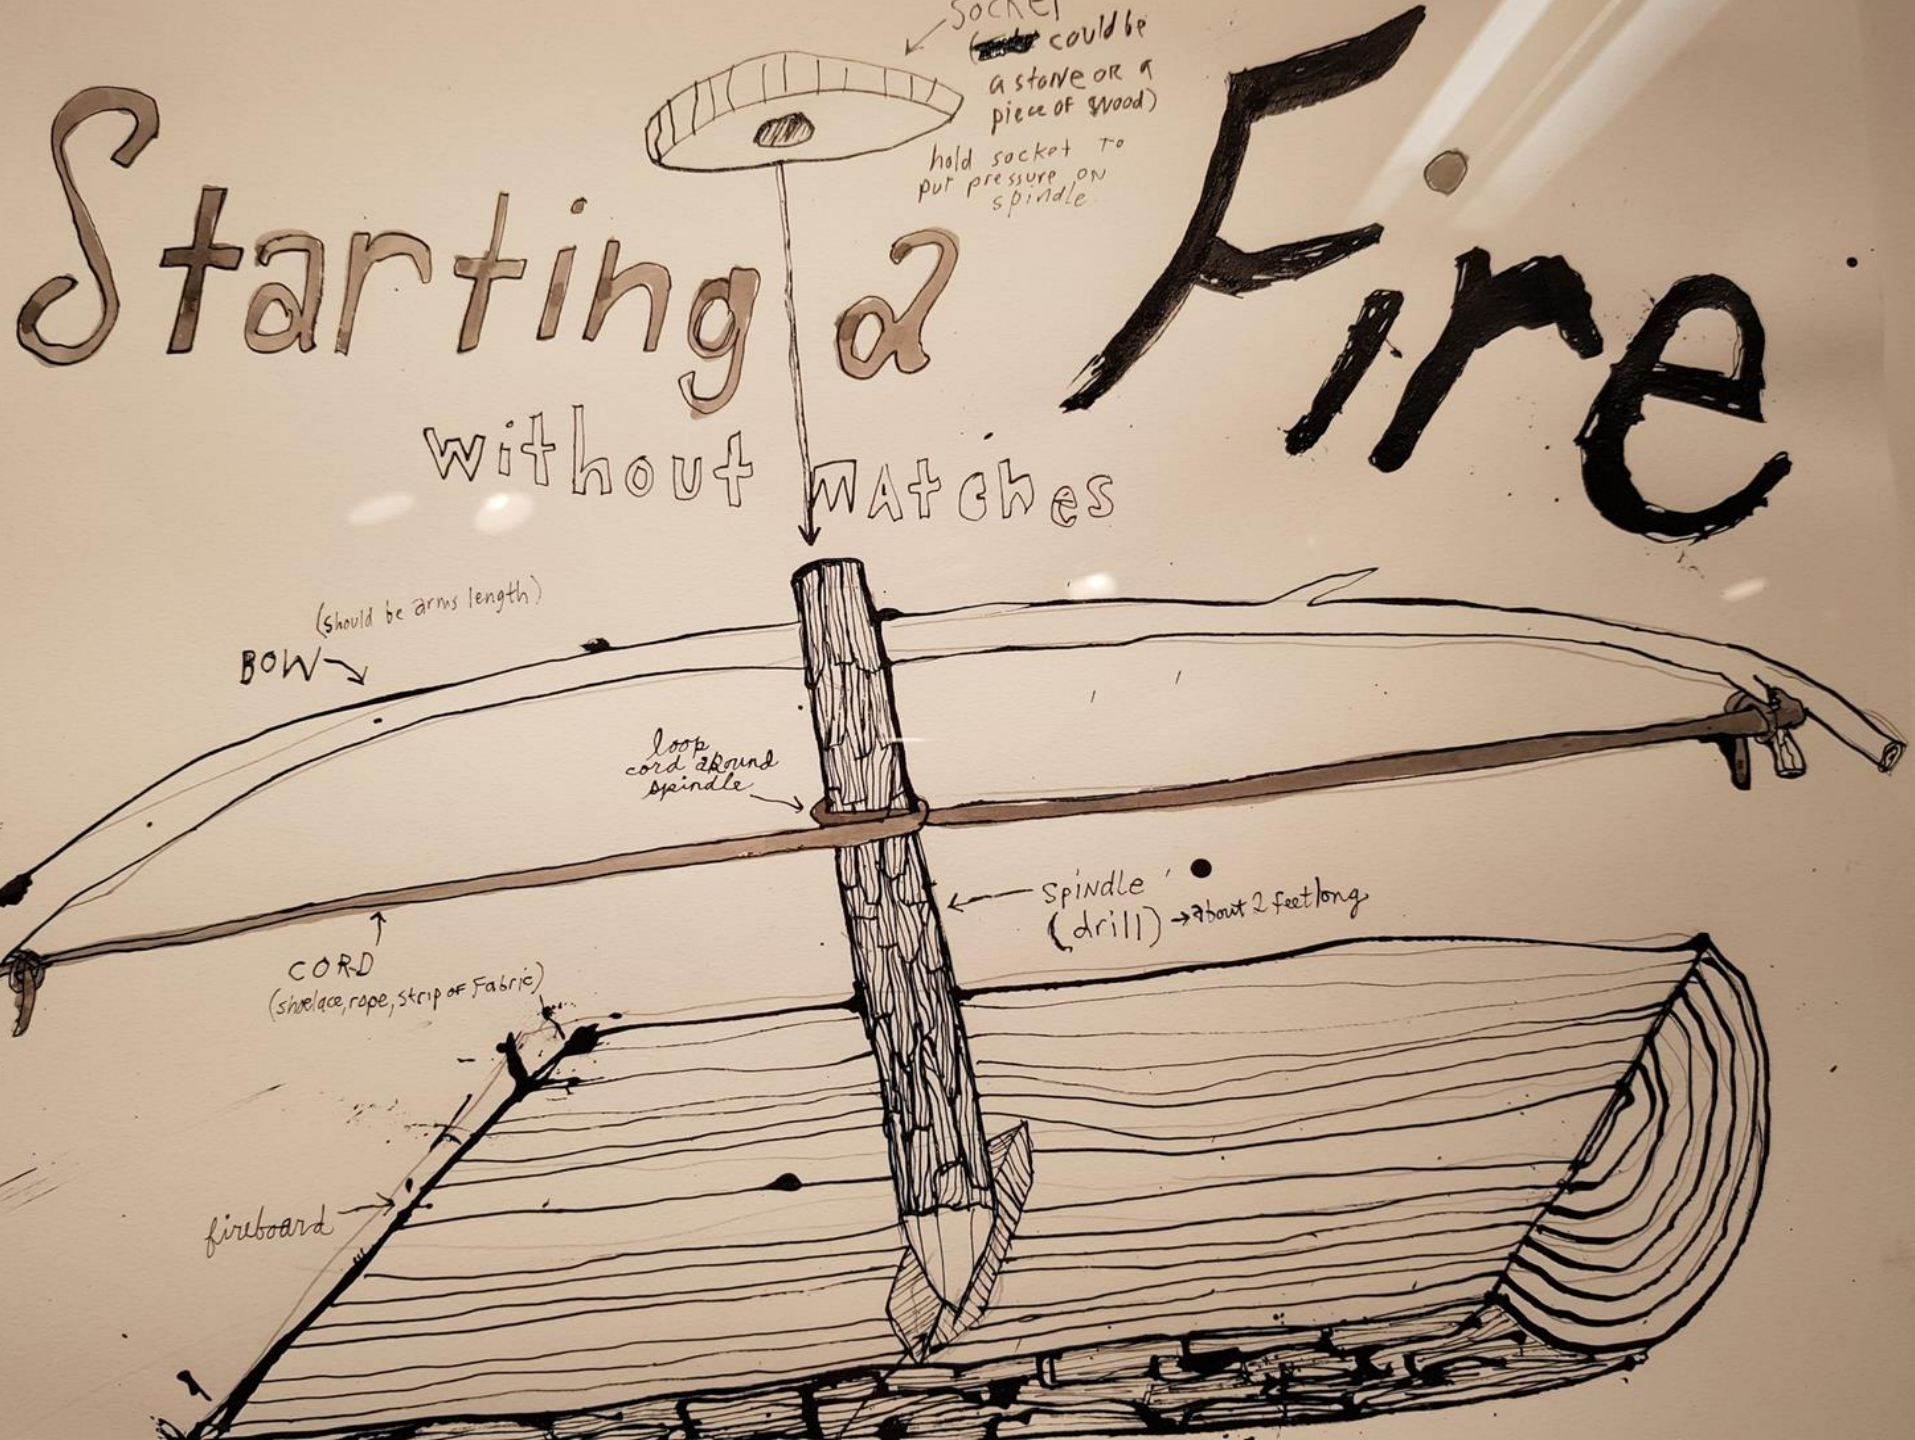 Socket
( could be
a stone OR a
piece of wood)
hold socket TO
put pressure ON
spindle
Starting a Fire
without mATches
(should be arms length)
BOW
loop
cord aRound
spindle
SPiNdle
(drill) → about 2 feet long
CORD
(shoelace, rope, strip OF Fabric)
fireboard